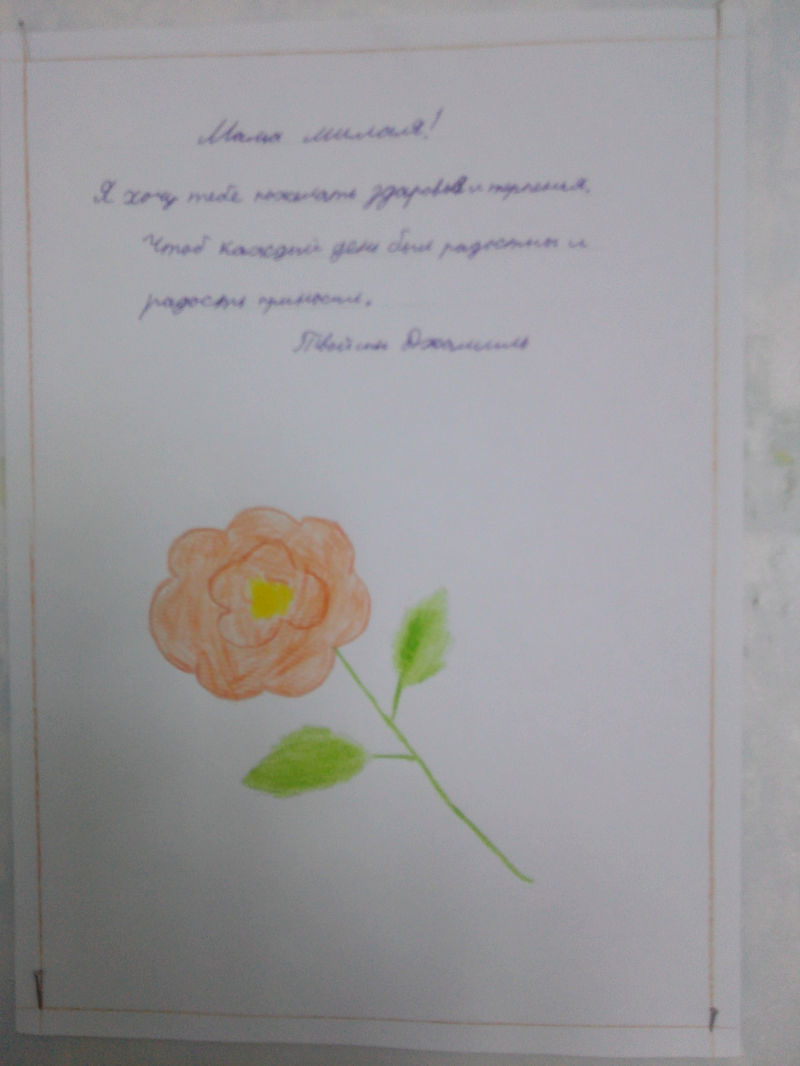 Мама милая!
Я хочу тебе пожелать здоровья и терпения.
Чтоб каждый день был радостны и
радость приносил.
Твой сын Джамиль